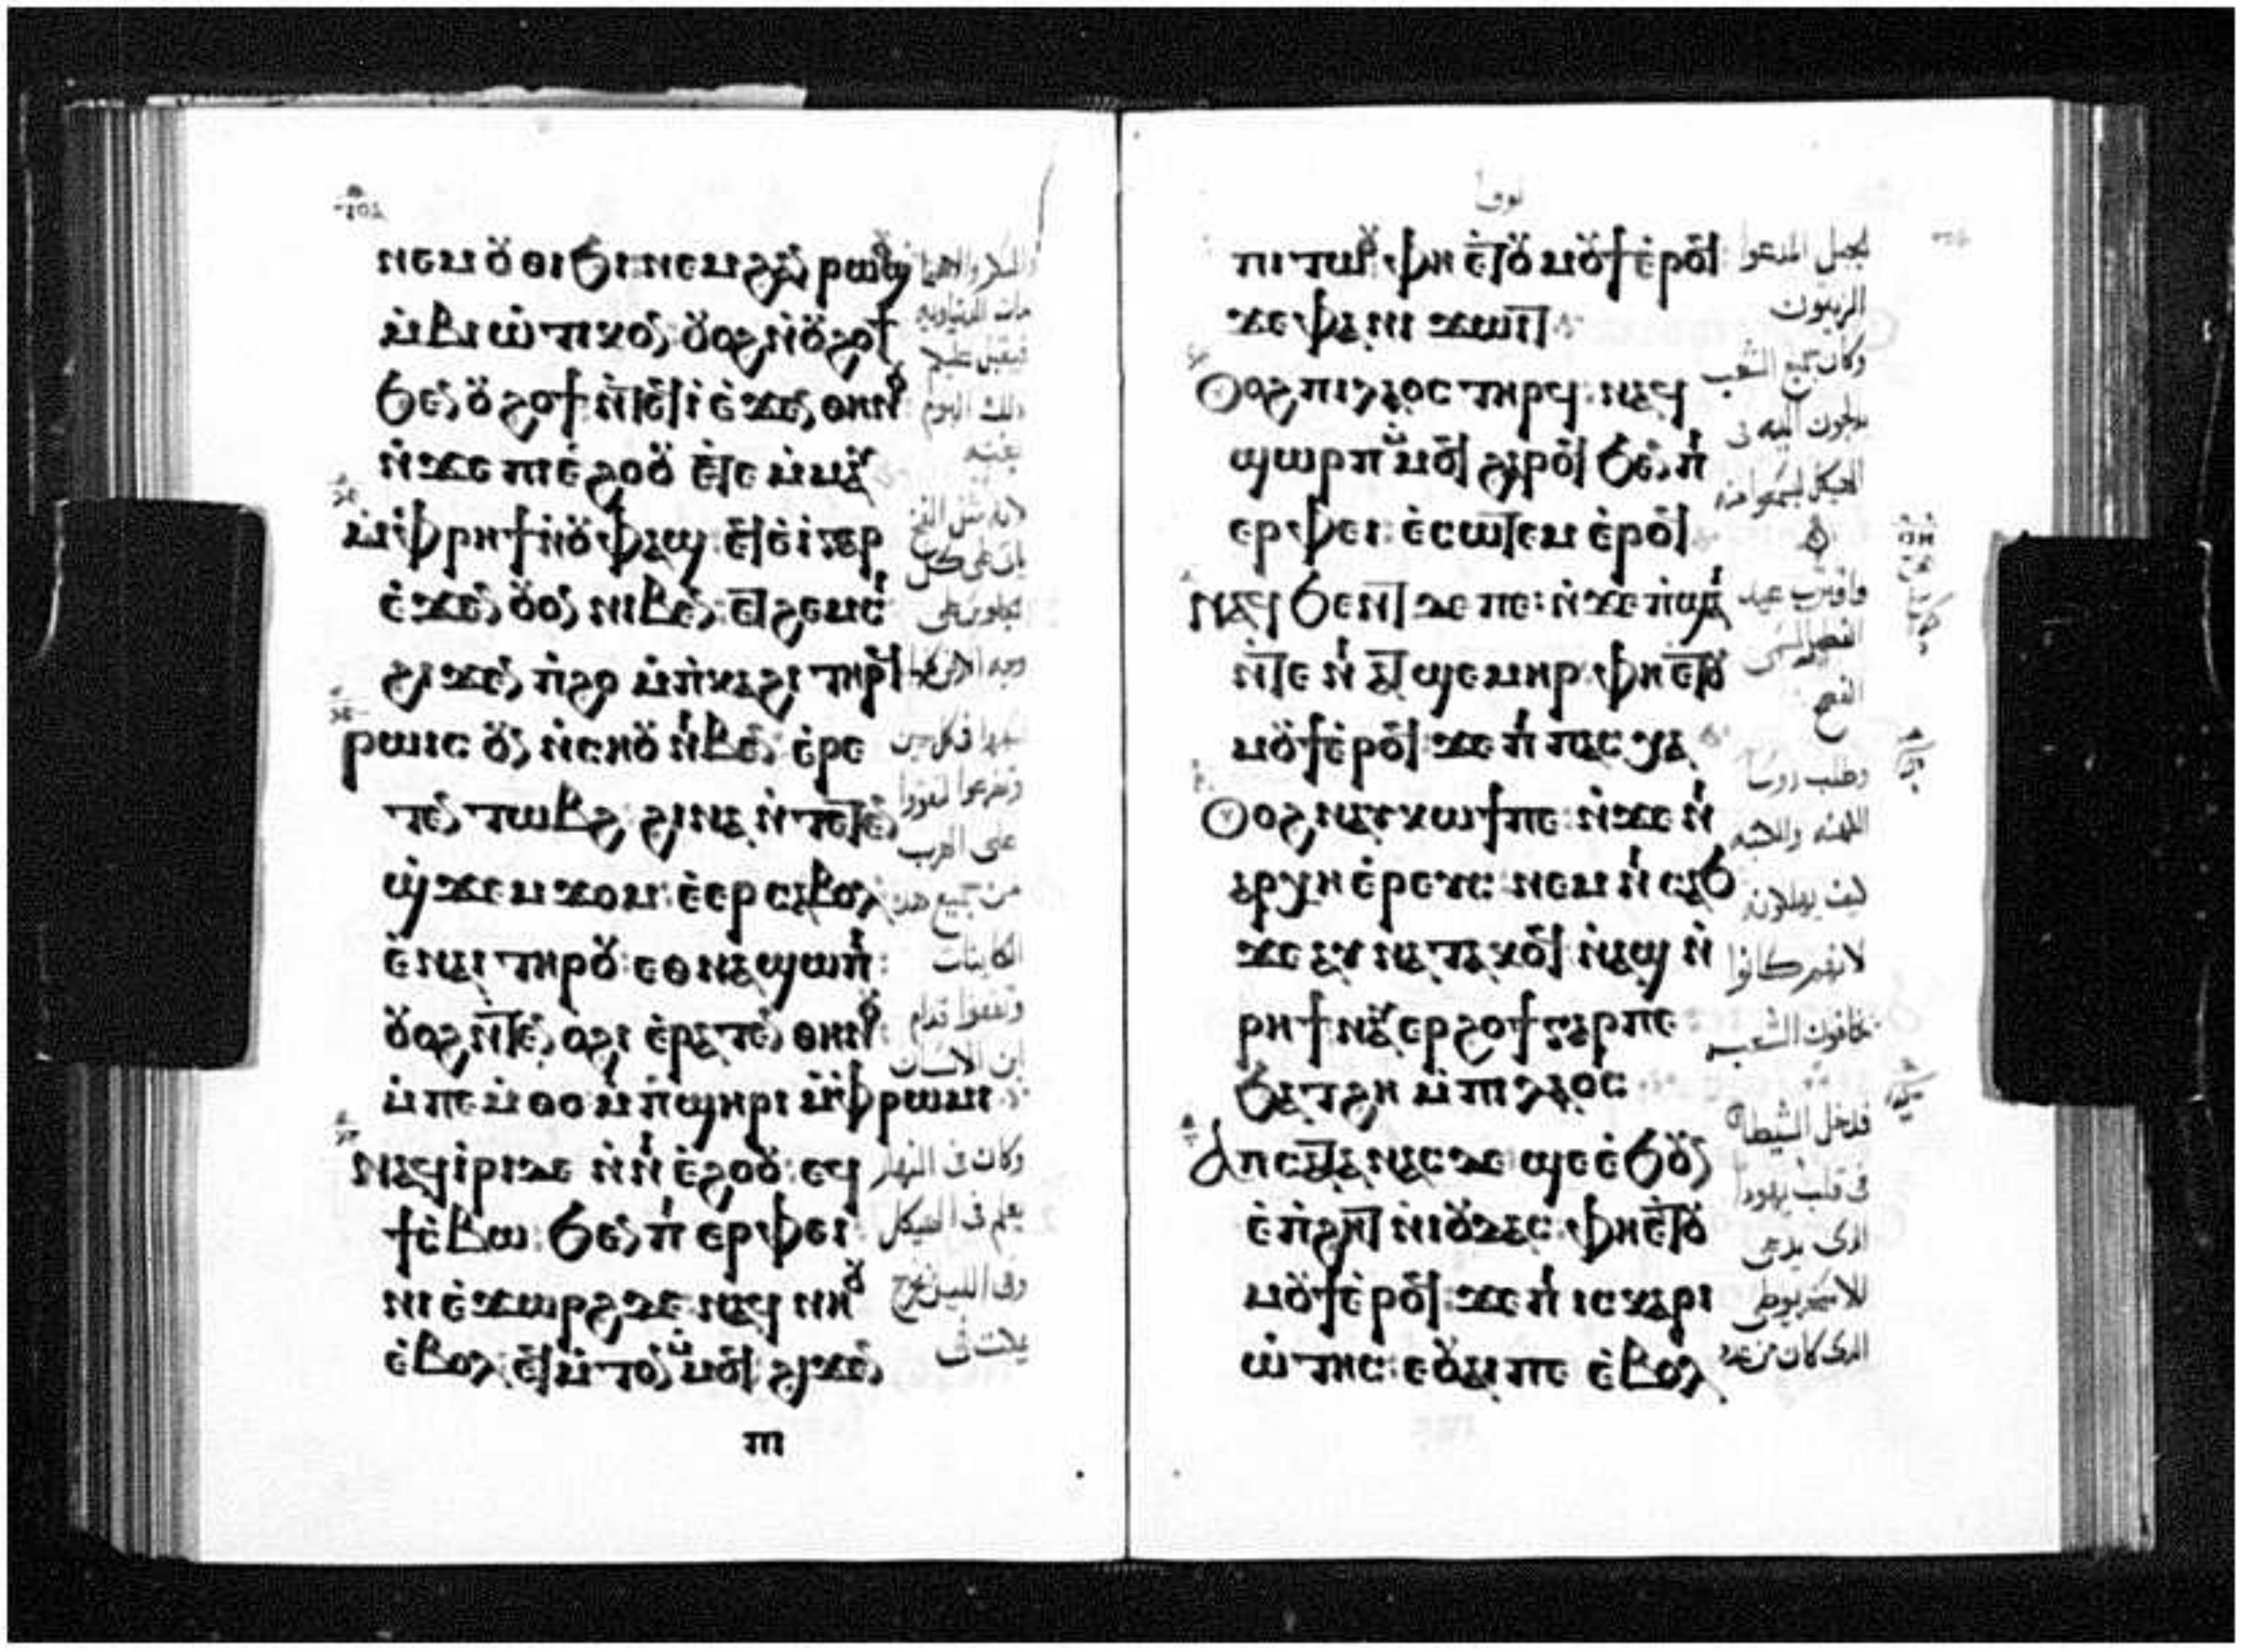 ⲛⲉⲙ ⲟⲩⲑⲓϧⲓ ⲛⲉⲙ ϩⲁⲛ ⲣⲱⲟⲩϣ
ⲙ̀ⲃⲓⲱⲧⲓⲕⲟⲛ ⲟⲩⲟϩ ⲛ̀ⲟⲩϩⲟϯ
ϧⲉⲛ ⲟⲩϩⲟϯ ⲛ̀ⲧⲉϥⲓ̀ ⲉ̀ϫⲉⲛ ⲑⲏⲛⲟⲩ
ⲛ̀ϫⲉ ⲡⲓⲉ̀ϩⲟⲟⲩ ⲉ̀ⲧⲉ ⲙ̀ⲙⲁⲩ
ⲙ̀ⲫⲣⲏϯ ⲛ̀ⲟⲩⲫⲁϣ ⲉϥⲉⲓ̀ ⲅⲁⲣ
ⲉ̀ϫⲉⲛ ⲟⲩⲟⲛ ⲛⲓⲃⲉⲛ ⲉⲧϩⲉⲙⲥⲓ
ϩⲓϫⲉⲛ ⲡ̀ϩⲟ ⲙ̀ⲡ̀ⲕⲁϩⲓ ⲧⲏⲣϥ
ⲣⲱⲓⲥ ⲟⲩⲛ ⲛ̀ⲥⲏⲟⲩ ⲛⲓⲃⲉⲛ ⲉ̀ⲣⲉ
ⲧⲉⲛ ⲧⲱⲃϩ ϩⲓⲛⲁ ⲛ̀ⲧⲉⲧⲉⲛ
ϣϫⲉⲙϫⲟⲙ ⲉ̀ⲉⲣⲥⲁⲃⲟⲗ
ⲉ̀ⲛⲁⲓ ⲧⲏⲣⲟⲩ ⲉⲑⲛⲁϣⲱⲡⲓ
ⲟⲩⲟϩ ⲛ̀ⲧⲉⲧⲉⲛ ⲟϩⲓ ⲉ̀ⲣⲁⲧⲉⲛ ⲑⲏⲛⲟⲩ
ⲙ̀ⲡⲉⲙ̀ⲑⲟ ⲙ̀ⲡ̀ϣⲏⲣⲓ ⲙ̀ⲫⲣⲱⲙⲓ
ⲛⲁϥⲓ̀ⲣⲓ ⲇⲉ ⲛ̀ⲛⲓⲉ̀ϩⲟⲟⲩ ⲉϥ
ϯⲥ̀ⲃⲱ ϧⲉⲛ ⲡⲓⲉⲣⲫⲉⲓ
ⲛⲓⲉ̀ϫⲱⲣϩ ⲇⲉ ⲛⲁϥ ⲛⲏⲟⲩ
ⲉ̀ⲃⲟⲗ ⲉϥⲙ̀ⲧⲟⲛ ⲙ̀ⲙⲟϥ ϩⲓϫⲉⲛ
ⲡⲓ
فيقبل عليكم
ذلك اليوم
بغتة
لانه مثل الفخ
وجه الارض كلها
وتضرعوا لتقووا
على الهرب
من جميع هذه
الكاينات
وتقفوا قدام
ابن الانسان
وكان فى النهار
يعلم فى الهيكل
وفى الليل يخرج
لوقا
ⲡⲓⲧⲱⲟⲩ ⲫⲏ ⲉ̀ⲧⲟⲩ ⲙⲟⲩϯ ⲉ̀ⲣⲟϥ
ϫⲉ ⲫⲁ ⲛⲓϫⲱⲓⲧ
ⲟⲩⲟϩ ⲡⲓⲗⲁⲟⲥ ⲧⲏⲣϥ ⲛⲁϥ
ϣⲱⲣⲡ ⲙ̀ⲙⲟϥ ϩⲁⲣⲟϥ ϧⲉⲛ ⲡⲓ
ⲉⲣⲫⲉⲓ ⲉ̀ⲥⲱⲧⲉⲙ ⲉ̀ⲣⲟϥ
ⲛⲁϥ ϧⲉⲛⲧ ⲇⲉ ⲡⲉ ⲛ̀ϫⲉ ⲡ̀ϣⲁⲓ
ⲛ̀ⲧⲉ ⲛⲓ ⲁⲧϣⲉⲙⲏⲣ ⲫⲏ ⲉ̀ⲧⲟⲩ
ⲙⲟⲩϯ ⲉ̀ⲣⲟϥ ϫⲉ ⲡⲓ ⲡⲁⲥⲭⲁ
ⲟⲩⲟϩ ⲛⲁⲩⲕⲱϯ ⲡⲉ ⲛ̀ϫⲉ ⲛⲓ
ⲁⲣⲭⲏⲉ̀ⲣⲉⲩⲥ ⲛⲉⲙ ⲛⲓ ⲥⲁϧ
ϫⲉ ⲁⲩ ⲛⲁⲧⲁⲕⲟϥ ⲛ̀ⲁϣ ⲛ̀
ⲣⲏϯ ⲛⲁⲩ ⲉⲣϩⲟϯ ⲅⲁⲣ ⲡⲉ
ϧⲁⲧϩⲏ ⲙ̀ⲡⲓⲗⲁⲟⲥ
ⲁⲡⲥⲁⲧⲁⲛⲁⲥ ⲇⲉ ϣⲉ ⲉ̀ϧⲟⲩⲛ
ⲉ̀ⲡ̀ϩⲏⲧ ⲛ̀ⲓⲟⲩⲇⲁⲥ ⲫⲏ ⲉ̀ⲧⲟⲩ
ⲙⲟⲩϯ ⲉ̀ⲣⲟϥ ϫⲉ ⲡⲓ ⲓⲥⲕⲁⲣⲓ
ⲱ̀ⲧⲏⲥ ⲉⲟⲩⲁⲓ ⲡⲉ ⲉ̀ⲃⲟⲗ
لجبل المدعوا
الزيتون
وكان جميع الشعب
يدلجون اليه فى
الهيكل ليسمعوا منه
واقترب عيد
الفطير المسمى
الفصح
وطلب روسا
الكهنه والكتبه
كيف يهلكونه
لانهم كانوا
يخافون الشعب
فدخل الشيطان
فى قلب يهودا
الذى يدعى
الاسخريوطى
الذى كان من عدد